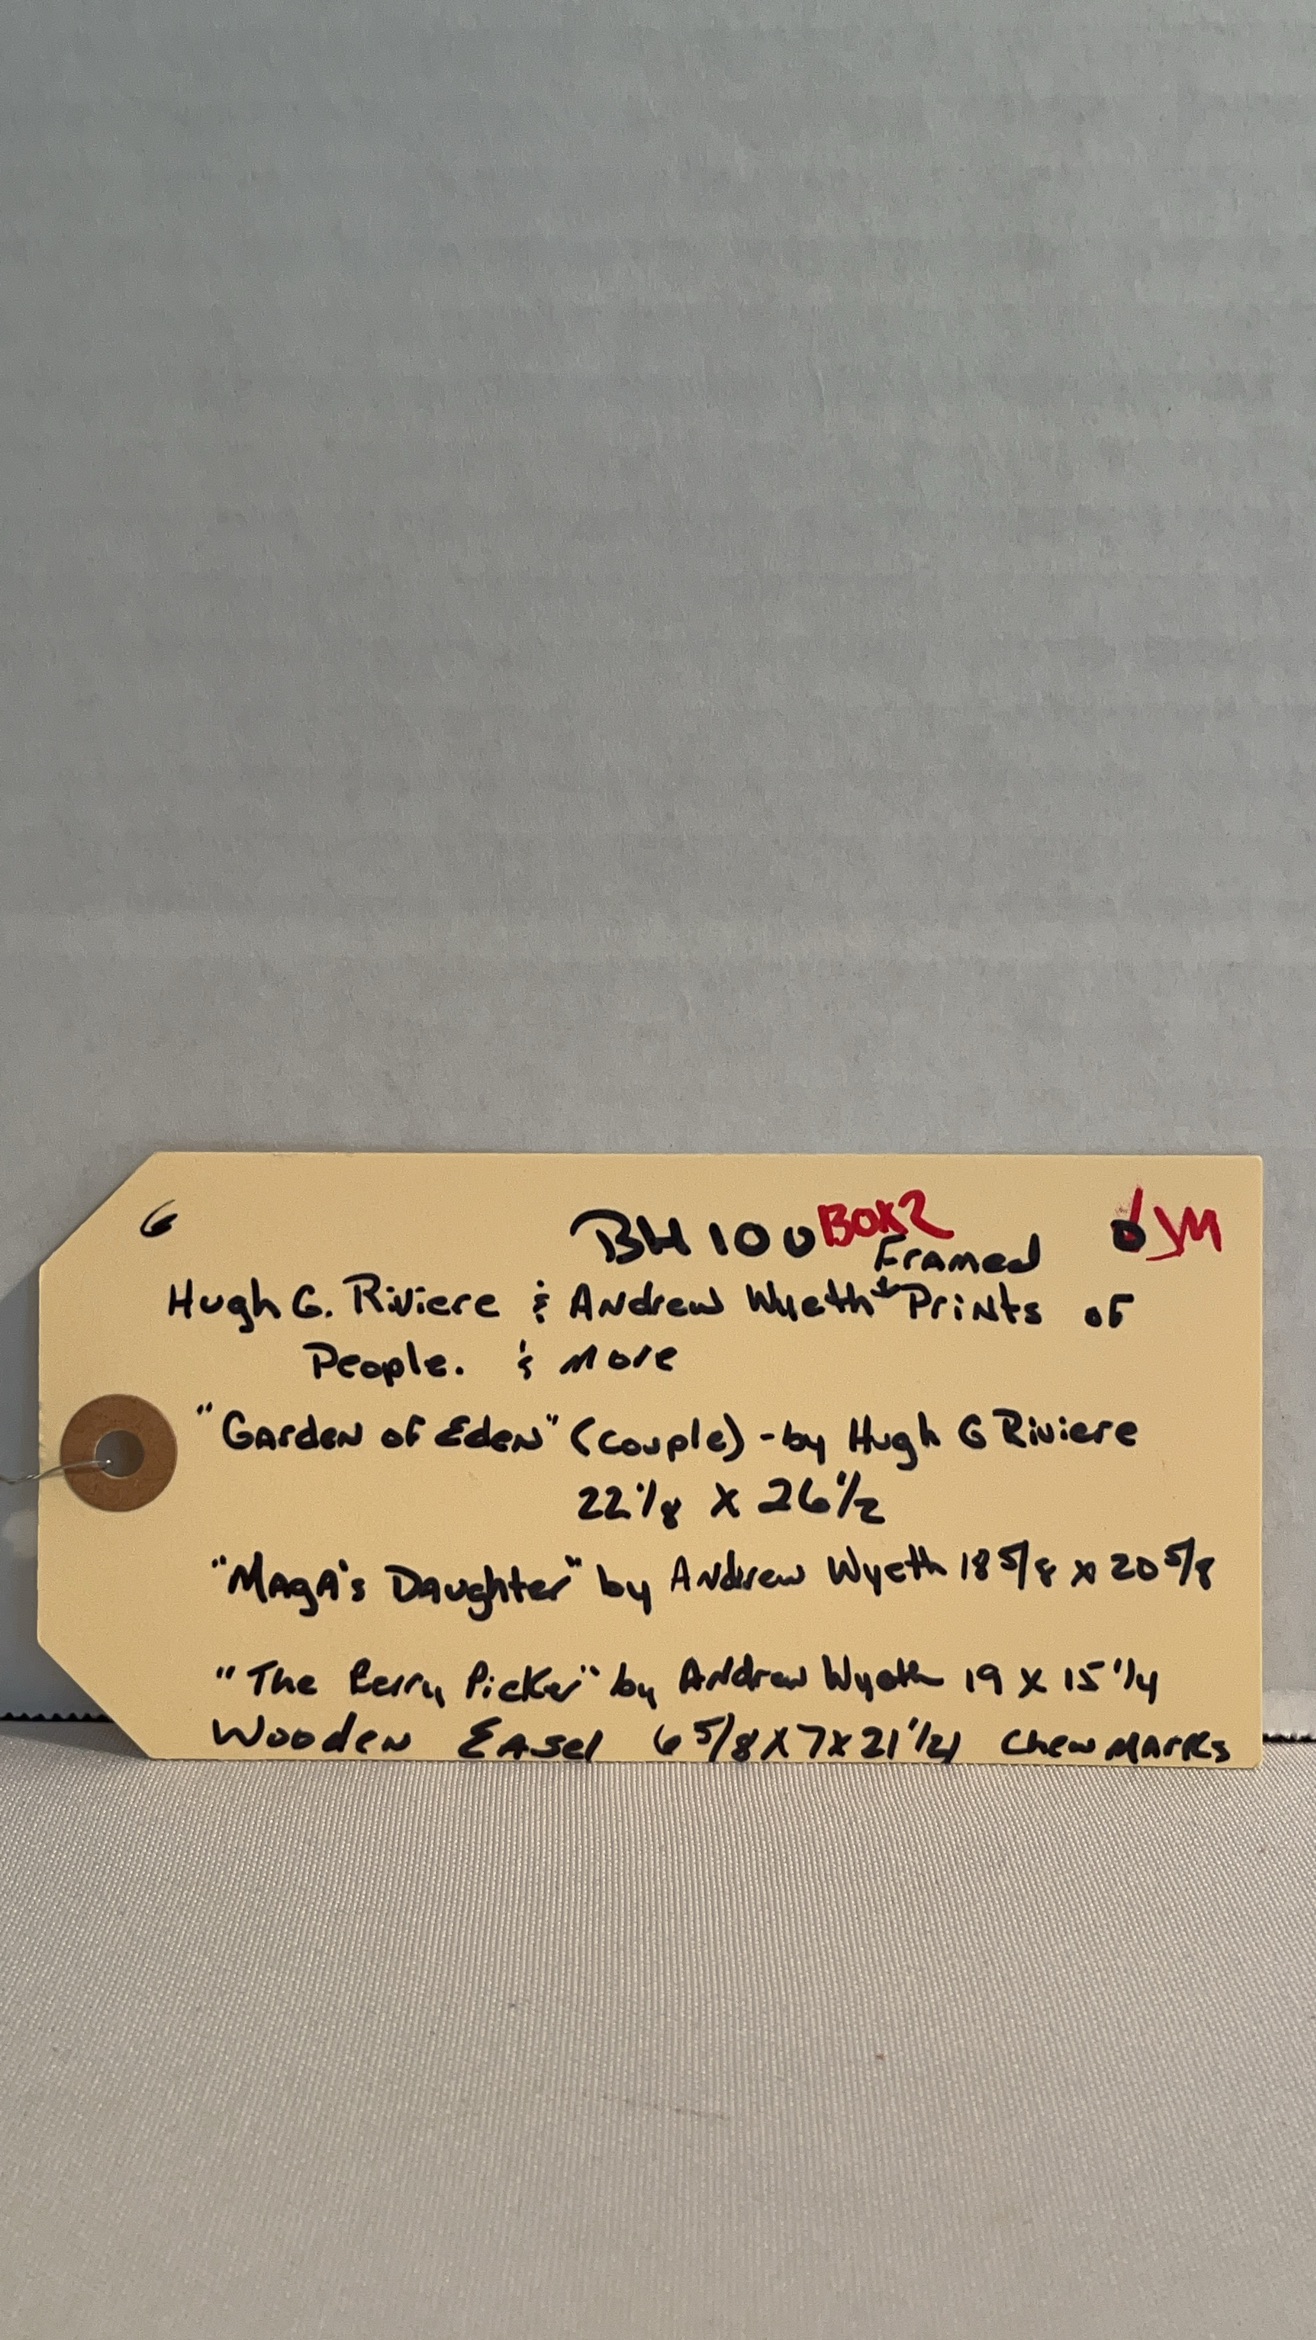 6 BH 100 BOX2 JM
Framed
Hugh G. Riviere & Andrew Wyeth Prints of
People. & More
"Garden of Eden" (couple) - by Hugh G Riviere
22 1/8 X 26 1/2
"Maga's Daughter" by Andrew Wyeth 18 5/8 x 20 5/8
"The Berry Picker" by Andrew Wyeth 19 X 15 1/4
Wooden Easel 6 5/8 X 7 X 21 1/2 Chew Marks